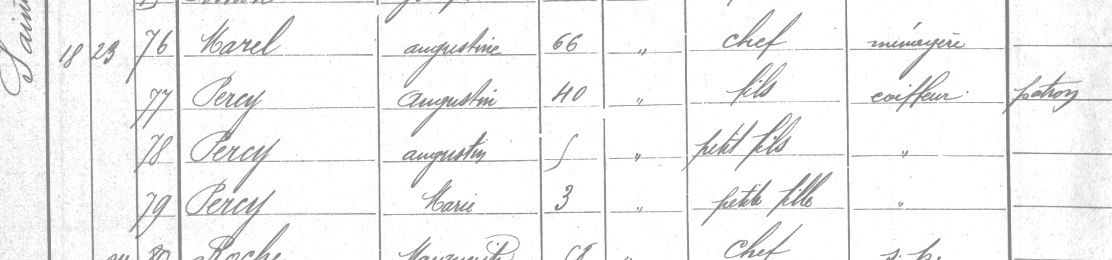 18 23 76 Marel augustine 66 " chef ménagère
77 Percy Augustin 40 " fils coiffeur patron
78 Percy augustin 5 " petit fils "
79 Percy Marie 3 " petite fille "
80 Roche Marguerite " chef